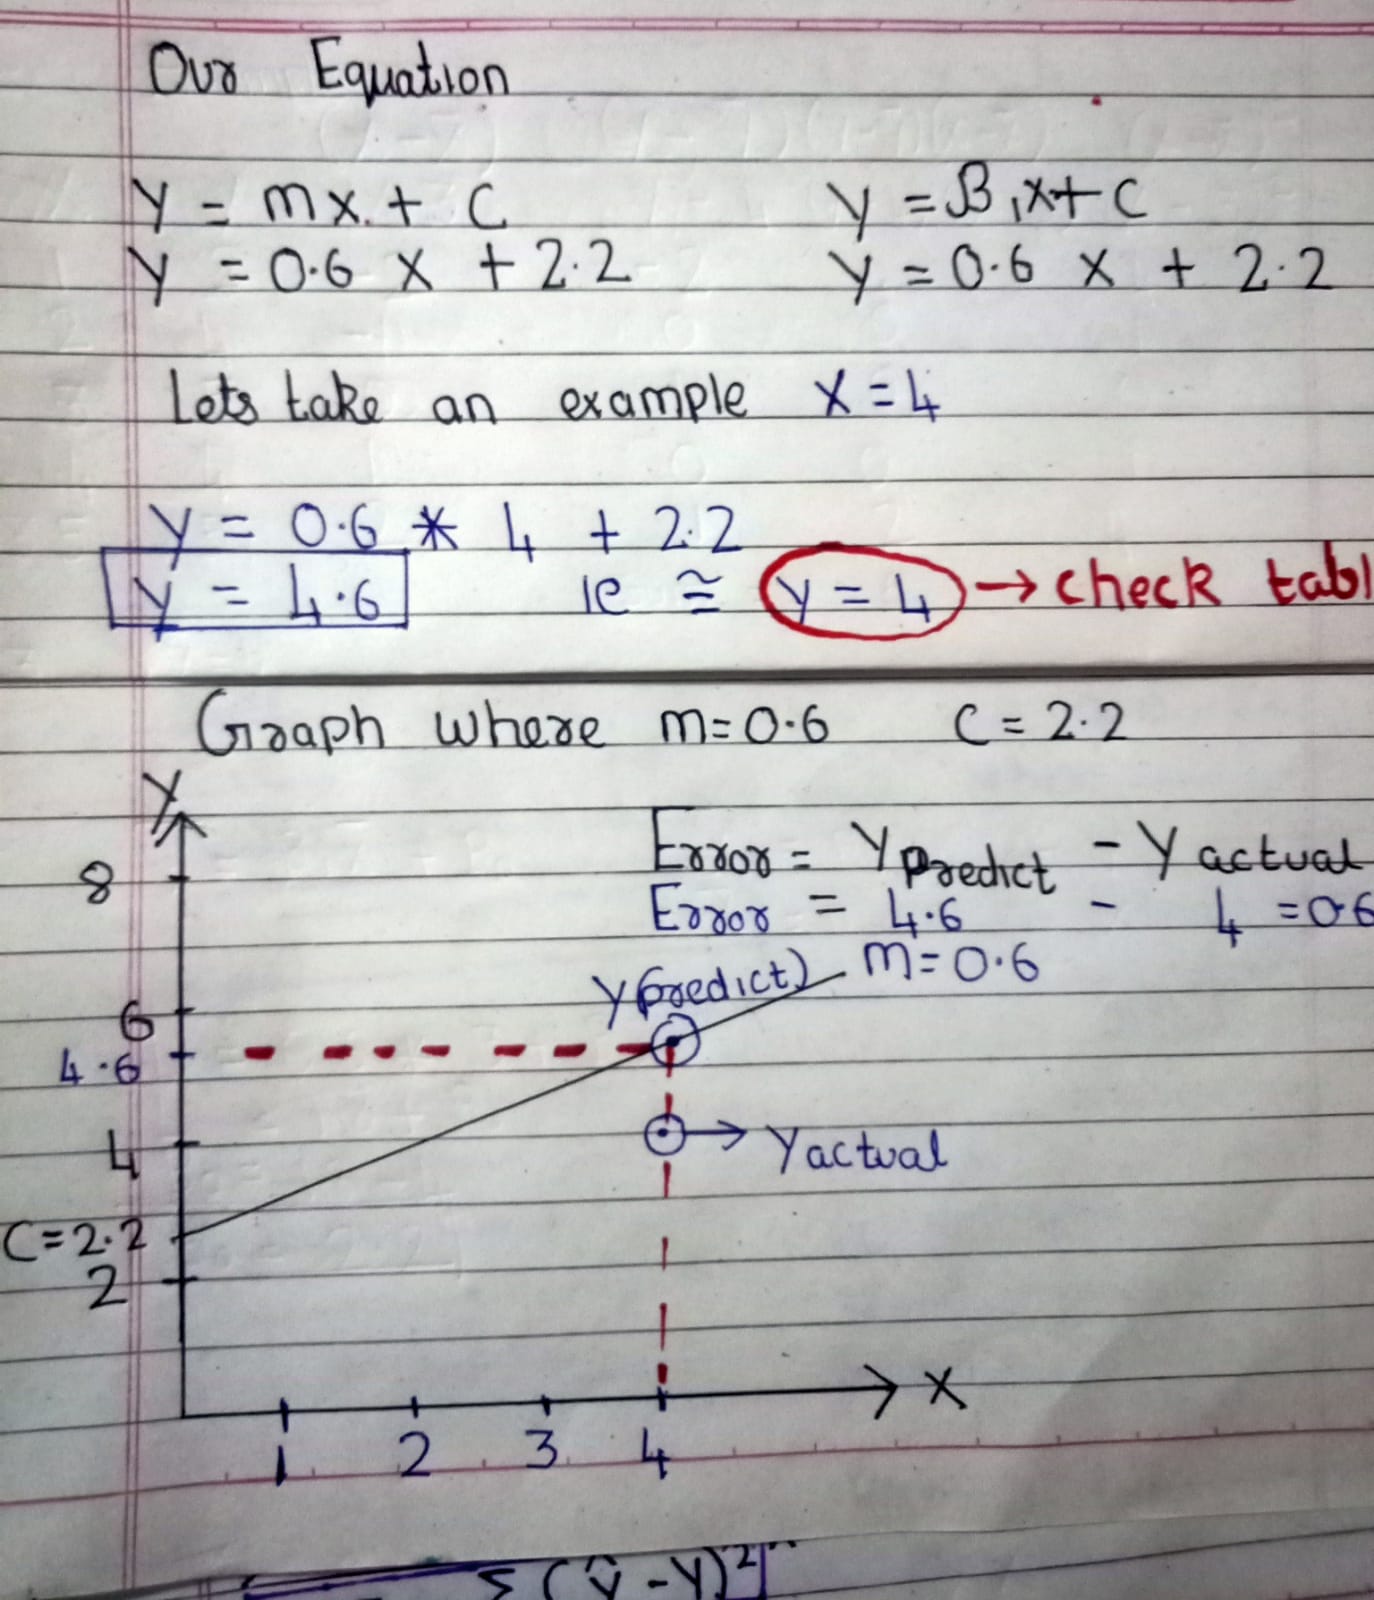 Our Equation
y = mx + c y = β₁x + c
y = 0.6 x + 2.2 y = 0.6 x + 2.2
Lets take an example x = 4
y = 0.6 * 4 + 2.2
y = 4.6 ie ≅ y = 4 → check tabl
Graph where m=0.6 C = 2.2
Y
Error = Y predict - Y actual
8
Error = 4.6 - 4 = 0.6
m = 0.6
y(predict)
6
4.6
4
Yactual
C = 2.2
2
X
1 2 3 4
Σ(ŷ - y)²